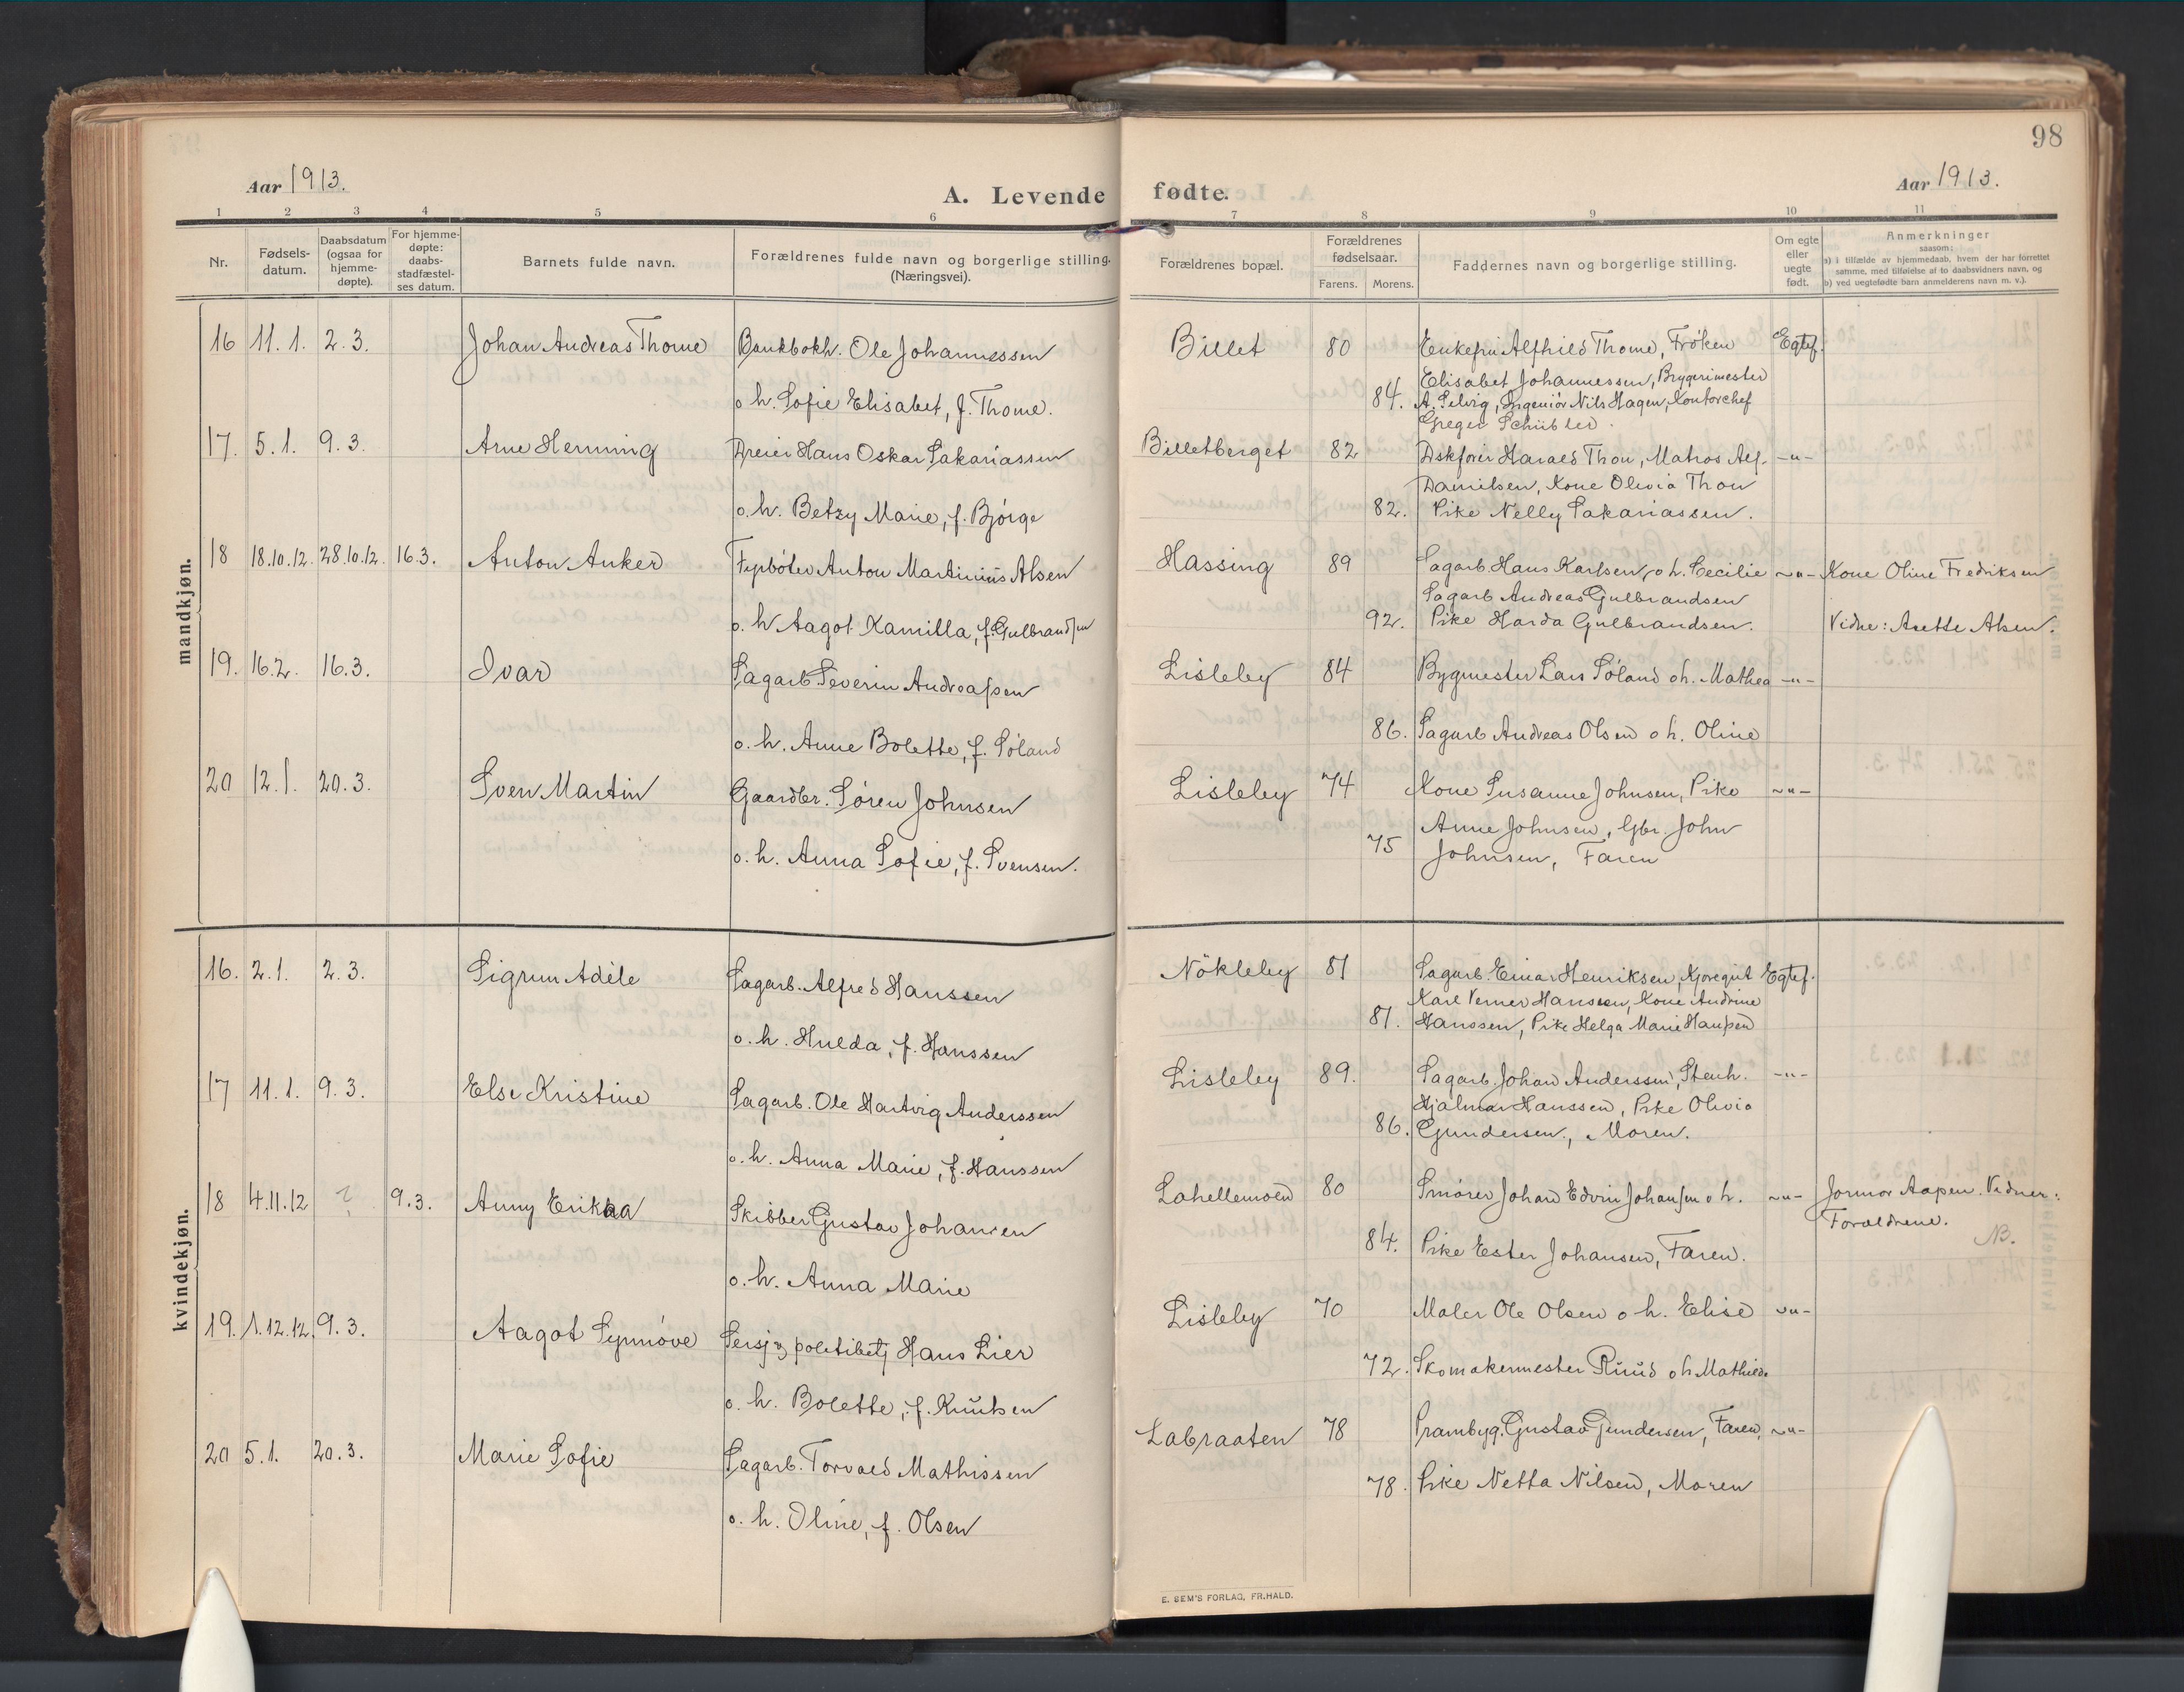 98
Aar 1913.
A. Levende fødte.
Aar 1913.
1 2 3 4 5 6 7 8 9 10 11
Nr.
Fødsels-
datum.
Daabsdatum
(ogsaa for
hjemme-
døpte).
For hjemme-
døpte:
daabs-
stadfæstel-
ses datum.
Barnets fulde navn.
Forældrenes fulde navn og borgerlige stilling.
(Næringsvei).
Forældrenes bopæl.
Forældrenes
fødselsaar.
Farens. Morens.
Faddernes navn og borgerlige stilling.
Om egte
eller
uegte
født.
Anmerkninger
saasom:
a) i tilfælde av hjemmedaab, hvem der har forrettet
samme, med tilføielse af to daabsvidners navn, og
b) ved uegtefødte barn anmelderens navn m. v.).
mandkjøn.
16 11. 1. 2. 3. Johan Andreas Thome Bankbokh. Ole Johannessen Billet 80 Enkefru Alfhild Thome, Frøken Egtef.
Elisabet Johannessen, Brygerimester
o. h. Sofie Elisabet, f. Thome. 84. A. Selvig, Ingeniør Nils Hagen, Kontorchef
Greger Schübler.
17. 5. 1. 9. 3. Arne Henning Dreier Hans Oskar Sakariassen Billetberget 82 Harald Thon, Matros Alf. -"-
Danielsen, Kone Olivia Thon
o. h. Betzy Marie, f. Bjørge 82. Pike Nelly Sakariassen.
18 18.10.12. 28.10.12. 16.3. Anton Anker Fyrbøter Anton Martinius Alsen Hassing 89 Sagarb. Hans Karlsen, o h. Cecilie -"- Kone Oline Fredriksen
Sagarb. Andreas Gulbrandsen
o. h. Aagot Kamilla, f. Gulbrandsen 92. Pike Harda Gulbrandsen. Vidne: Anette Alsen.
19. 16.2. 16.3. Ivar Sagarb. Severin Andreassen Lisleby 84 Bygmester Lars Søland o h. Mathea -"-
o. h. Anne Bolette, f. Søland 86. Sagarb Andreas Olsen o h. Oline
20 12. 1. 20. 3. Sven Martin Gaardbr. Søren Johnsen Lisleby 74 Kone Susanne Johnsen, Pike -"-
Anne Johnsen, Gbr. John
o. h. Anna Sofie, f. Svensen. 75 Johnsen, Faren
kvindekjøn.
16. 2. 1. 2. 3. Sigrun Adèle Sagarb. Alfred Hanssen Nøkleby 81 Sagarb. Einar Henriksen, Kjøregut Egtef.
Karl Verner Hanssen, Kone Andrine
o. h. Hulda, f. Hanssen 81. Hanssen, Pike Helga Marie Hanssen
17 11. 1. 9. 3. Else Kristine Sagarb. Ole Hartvig Anderssen Lisleby 89. Sagarb. Johan Anderssen, Stenh. -"-
Hjalmar Hanssen, Pike Olivia
o. h. Anna Marie, f. Hanssen 86. Gundersen, Moren.
18 4.11.12 ? 9.3. Anny Erikka Skibber Gustav Johansen Lahellemoen 80 Smører Johan Edvin Johansen o h. -"- Jormor Aapen. Vidner:
Forældrene.
NB.
o. h. Anna Marie 84. Pike Ester Johansen, Faren.
19. 1.12.12. 9. 3. Aagot Synnøve Sersj. og politibetj Hans Lier Lisleby 70 Maler Ole Olsen o h. Elise -"-
o. h. Bolette, f. Knutsen 72. Skomakermester Ruud o h Mathilde
20 5. 1. 20. 3. Marie Sofie Sagarb. Torvald Mathissen Labraaten 78 Prambyg. Gustav Gundersen, Faren, -"-
o. h. Oline, f. Olsen 78. Pike Netta Nilsen, Moren
E. SEM'S FORLAG, FR.HALD.